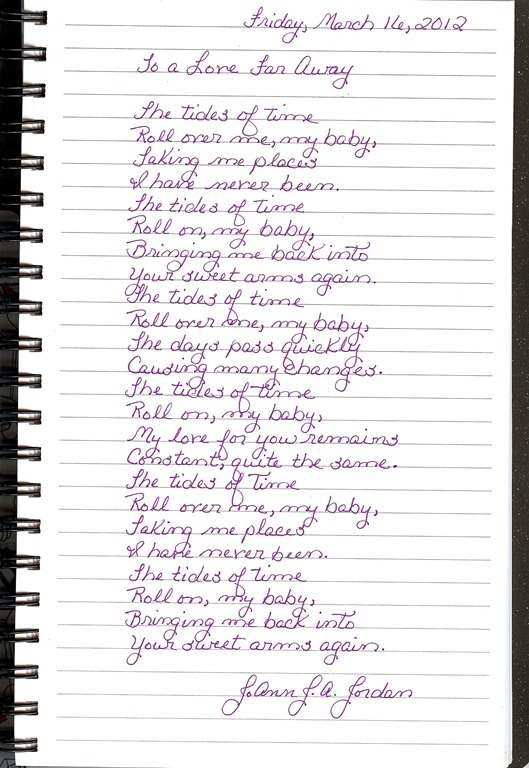 Friday, March 16, 2012
To a Love Far Away
The tides of time
Roll over me, my baby,
Taking me places
I have never been.
The tides of time
Roll on, my baby,
Bringing me back into
Your sweet arms again.
The tides of time
Roll over me, my baby,
The days pass quickly
Causing many changes.
The tides of time
Roll on, my baby,
My love for you remains
Constant, quite the same.
The tides of Time
Roll over me, my baby,
Taking me places
I have never been.
The tides of time
Roll on, my baby,
Bringing me back into
Your sweet arms again.
JoAnn J. A. Jordan